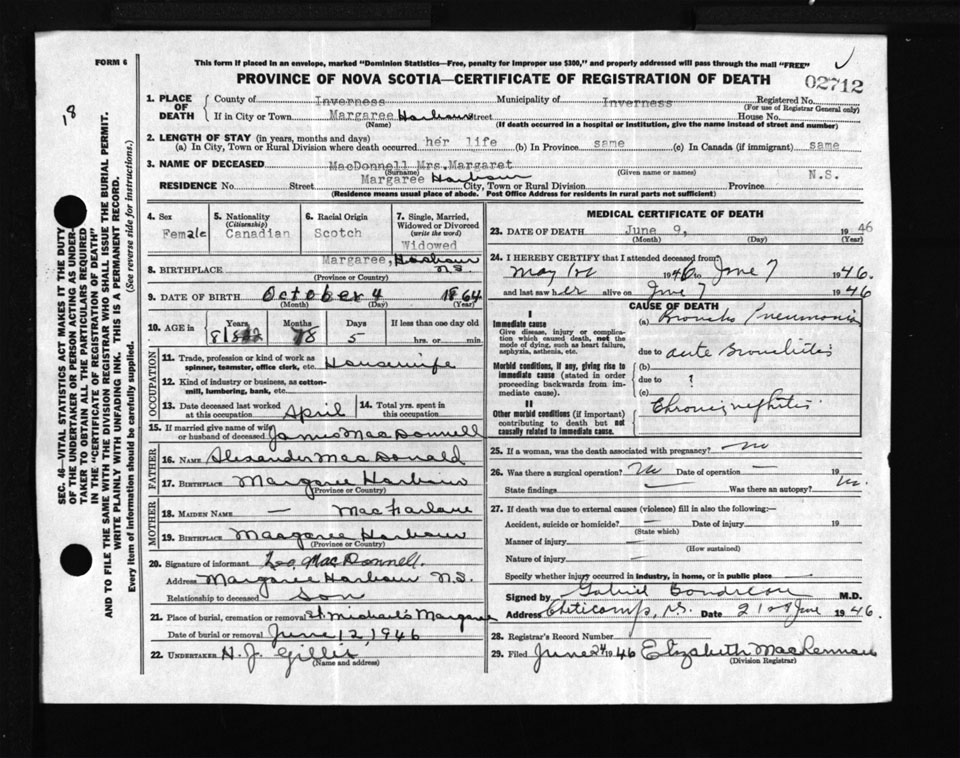 FORM 6
This form if placed in an envelope, marked "Dominion Statistics—Free, penalty for improper use $300," and properly addressed will pass through the mail "FREE"
PROVINCE OF NOVA SCOTIA—CERTIFICATE OF REGISTRATION OF DEATH
02712
18
SEC. 46—VITAL STATISTICS ACT MAKES IT THE DUTY
OF THE UNDERTAKER OR PERSON ACTING AS UNDER-
TAKER TO OBTAIN ALL THE PARTICULARS REQUIRED
IN THE "CERTIFICATE OF REGISTRATION OF DEATH"
AND TO FILE THE SAME WITH THE DIVISION REGISTRAR WHO SHALL ISSUE THE BURIAL PERMIT.
WRITE PLAINLY WITH UNFADING INK. THIS IS A PERMANENT RECORD.
Every item of Information should be carefully supplied. (See reverse side for instructions.)
1. PLACE OF DEATH County of Inverness Municipality of Inverness Registered No.
(For use of Registrar General only)
If in City or Town Margaree Harbour Street House No.
(Name) (If death occurred in a hospital or institution, give the name instead of street and number)
2. LENGTH OF STAY (in years, months and days)
(a) In City, Town or Rural Division where death occurred her life (b) In Province same (c) In Canada (if immigrant) same
3. NAME OF DECEASED MacDonnell Mrs. Margaret
(Surname) (Given name or names)
RESIDENCE No. Street Margaree Harbour City, Town or Rural Division Province N.S.
(Residence means usual place of abode. Post Office Address for residents in rural parts not sufficient)
4. Sex Female
5. Nationality (Citizenship) Canadian
6. Racial Origin Scotch
7. Single, Married, Widowed or Divorced (write the word) Widowed
8. BIRTHPLACE Margaree, Harbour N.S.
(Province or Country)
9. DATE OF BIRTH October 4 1864
(Month) (Day) (Year)
10. AGE in Years 81 Months 8 Days 5 If less than one day old hrs. or min.
OCCUPATION
11. Trade, profession or kind of work as spinner, teamster, office clerk, etc. Housewife
12. Kind of industry or business, as cotton-mill, lumbering, bank, etc.
13. Date deceased last worked at this occupation April
14. Total yrs. spent in this occupation
15. If married give name of wife or husband of deceased James MacDonnell
FATHER
16. NAME Alexander MacDonald
17. BIRTHPLACE Margaree Harbour
(Province or Country)
MOTHER
18. MAIDEN NAME — MacFarlane
19. BIRTHPLACE Margaree Harbour
(Province or Country)
20. Signature of informant Leo MacDonnell.
Address Margaree Harbour N.S.
Relationship to deceased Son
21. Place of burial, cremation or removal St. Michael's Margaree
Date of burial or removal June 12, 1946
22. UNDERTAKER H. J. Gillis
(Name and address)
MEDICAL CERTIFICATE OF DEATH
23. DATE OF DEATH June 9, 1946
(Month) (Day) (Year)
24. I HEREBY CERTIFY that I attended deceased from:
May 1st 1946 to June 7 1946.
and last saw her alive on June 7 1946
CAUSE OF DEATH
I
Immediate cause
Give disease, injury or complication which caused death, not the mode of dying, such as heart failure, asphyxia, asthenia, etc.
(a) Broncho Pneumonia
due to acute Bronchitis
Morbid conditions, if any, giving rise to immediate cause (stated in order proceeding backwards from immediate cause).
(b)
due to ?
(c)
II
Other morbid conditions (if important) contributing to death but not causally related to immediate cause.
Chronic nephritis.
25. If a woman, was the death associated with pregnancy? No
26. Was there a surgical operation? No Date of operation — 19
State findings — Was there an autopsy? No.
27. If death was due to external causes (violence) fill in also the following:—
Accident, suicide or homicide? — Date of injury 19
(State which)
Manner of injury —
(How sustained)
Nature of injury —
Specify whether injury occurred in industry, in home, or in public place —
Signed by Gabriel Boudreau M.D.
Address Cheticamp, N.S. Date 21st June 1946
28. Registrar's Record Number
29. Filed June 24 1946 Elizabeth MacLennan
(Division Registrar)